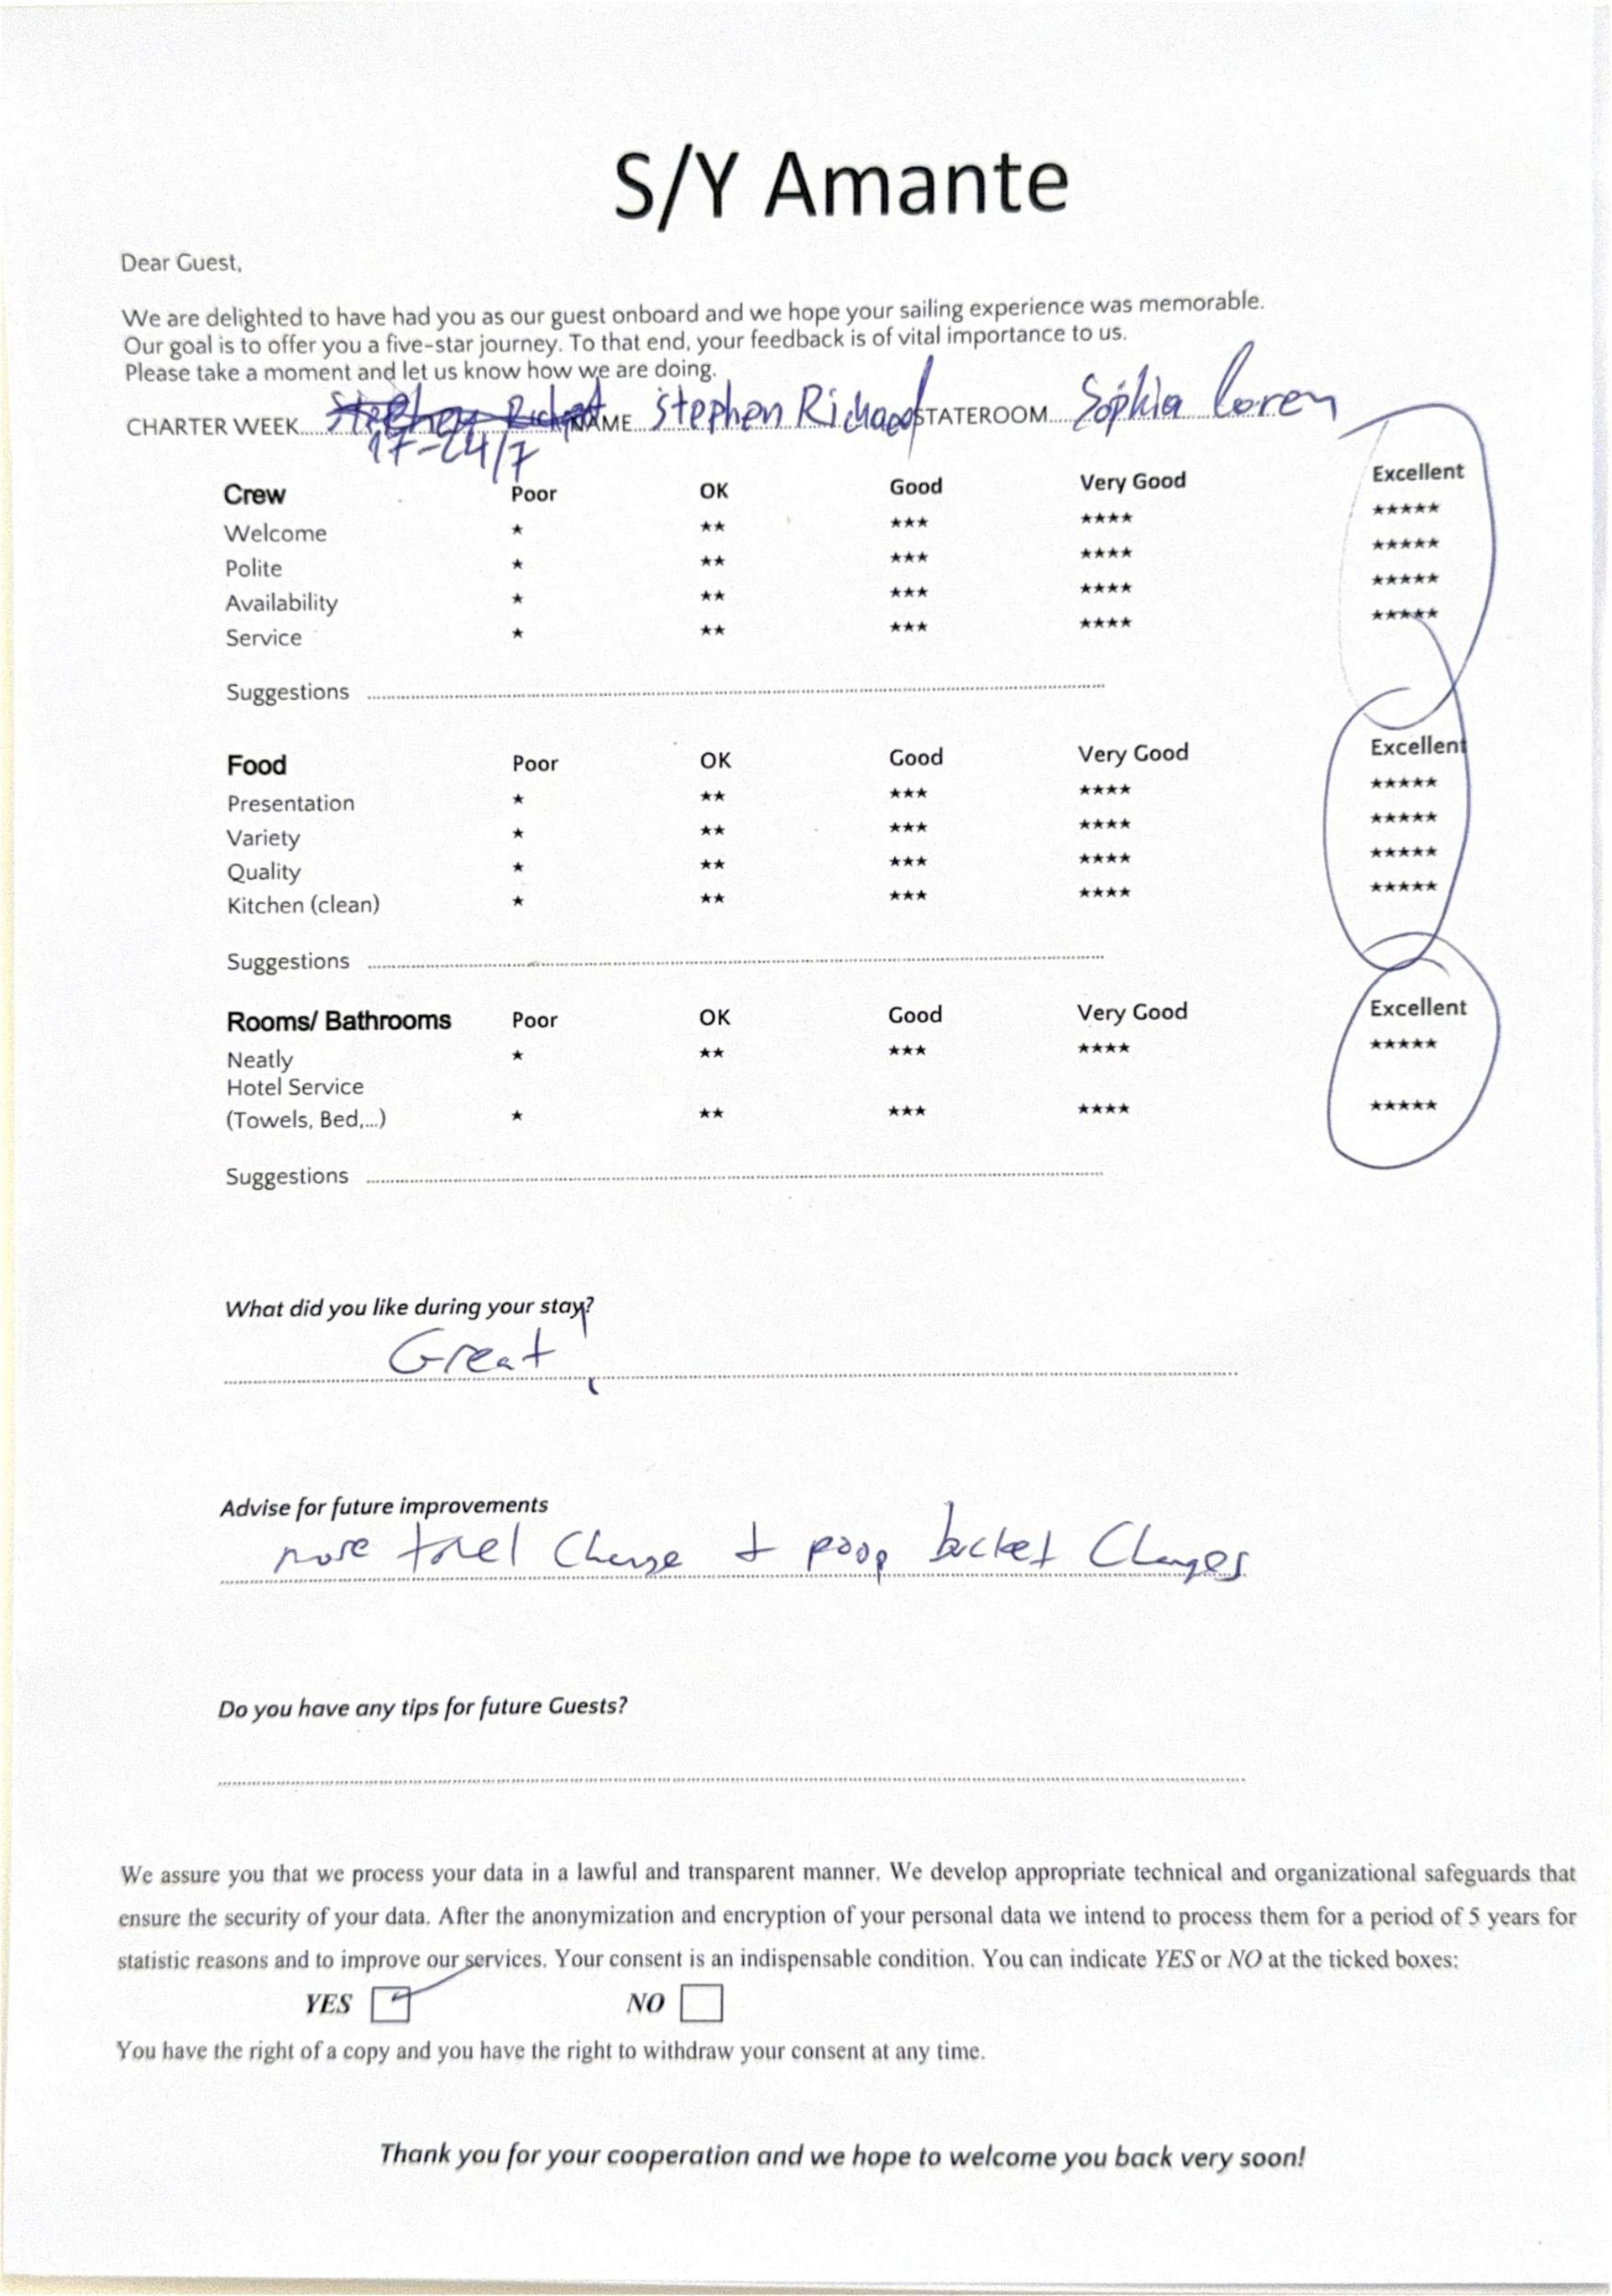 S/Y Amante
Dear Guest,
We are delighted to have had you as our guest onboard and we hope your sailing experience was memorable.
Our goal is to offer you a five-star journey. To that end, your feedback is of vital importance to us.
Please take a moment and let us know how we are doing.
CHARTER WEEK Stephen NAME Stephen Richard STATEROOM Sophia Loren
17-24/7
Crew Poor OK Good Very Good Excellent
Welcome ★ ★★ ★★★ ★★★★ ★★★★★
Polite ★ ★★ ★★★ ★★★★ ★★★★★
Availability ★ ★★ ★★★ ★★★★ ★★★★★
Service ★ ★★ ★★★ ★★★★ ★★★★★
Suggestions
Food Poor OK Good Very Good Excellent
Presentation ★ ★★ ★★★ ★★★★ ★★★★★
Variety ★ ★★ ★★★ ★★★★ ★★★★★
Quality ★ ★★ ★★★ ★★★★ ★★★★★
Kitchen (clean) ★ ★★ ★★★ ★★★★ ★★★★★
Suggestions
Rooms/ Bathrooms Poor OK Good Very Good Excellent
Neatly ★ ★★ ★★★ ★★★★ ★★★★★
Hotel Service
(Towels, Bed,...) ★ ★★ ★★★ ★★★★ ★★★★★
Suggestions
What did you like during your stay?
Great
Advise for future improvements
more towel Change + poop bucket Changes
Do you have any tips for future Guests?
We assure you that we process your data in a lawful and transparent manner. We develop appropriate technical and organizational safeguards that
ensure the security of your data. After the anonymization and encryption of your personal data we intend to process them for a period of 5 years for
statistic reasons and to improve our services. Your consent is an indispensable condition. You can indicate YES or NO at the ticked boxes:
YES NO
You have the right of a copy and you have the right to withdraw your consent at any time.
Thank you for your cooperation and we hope to welcome you back very soon!